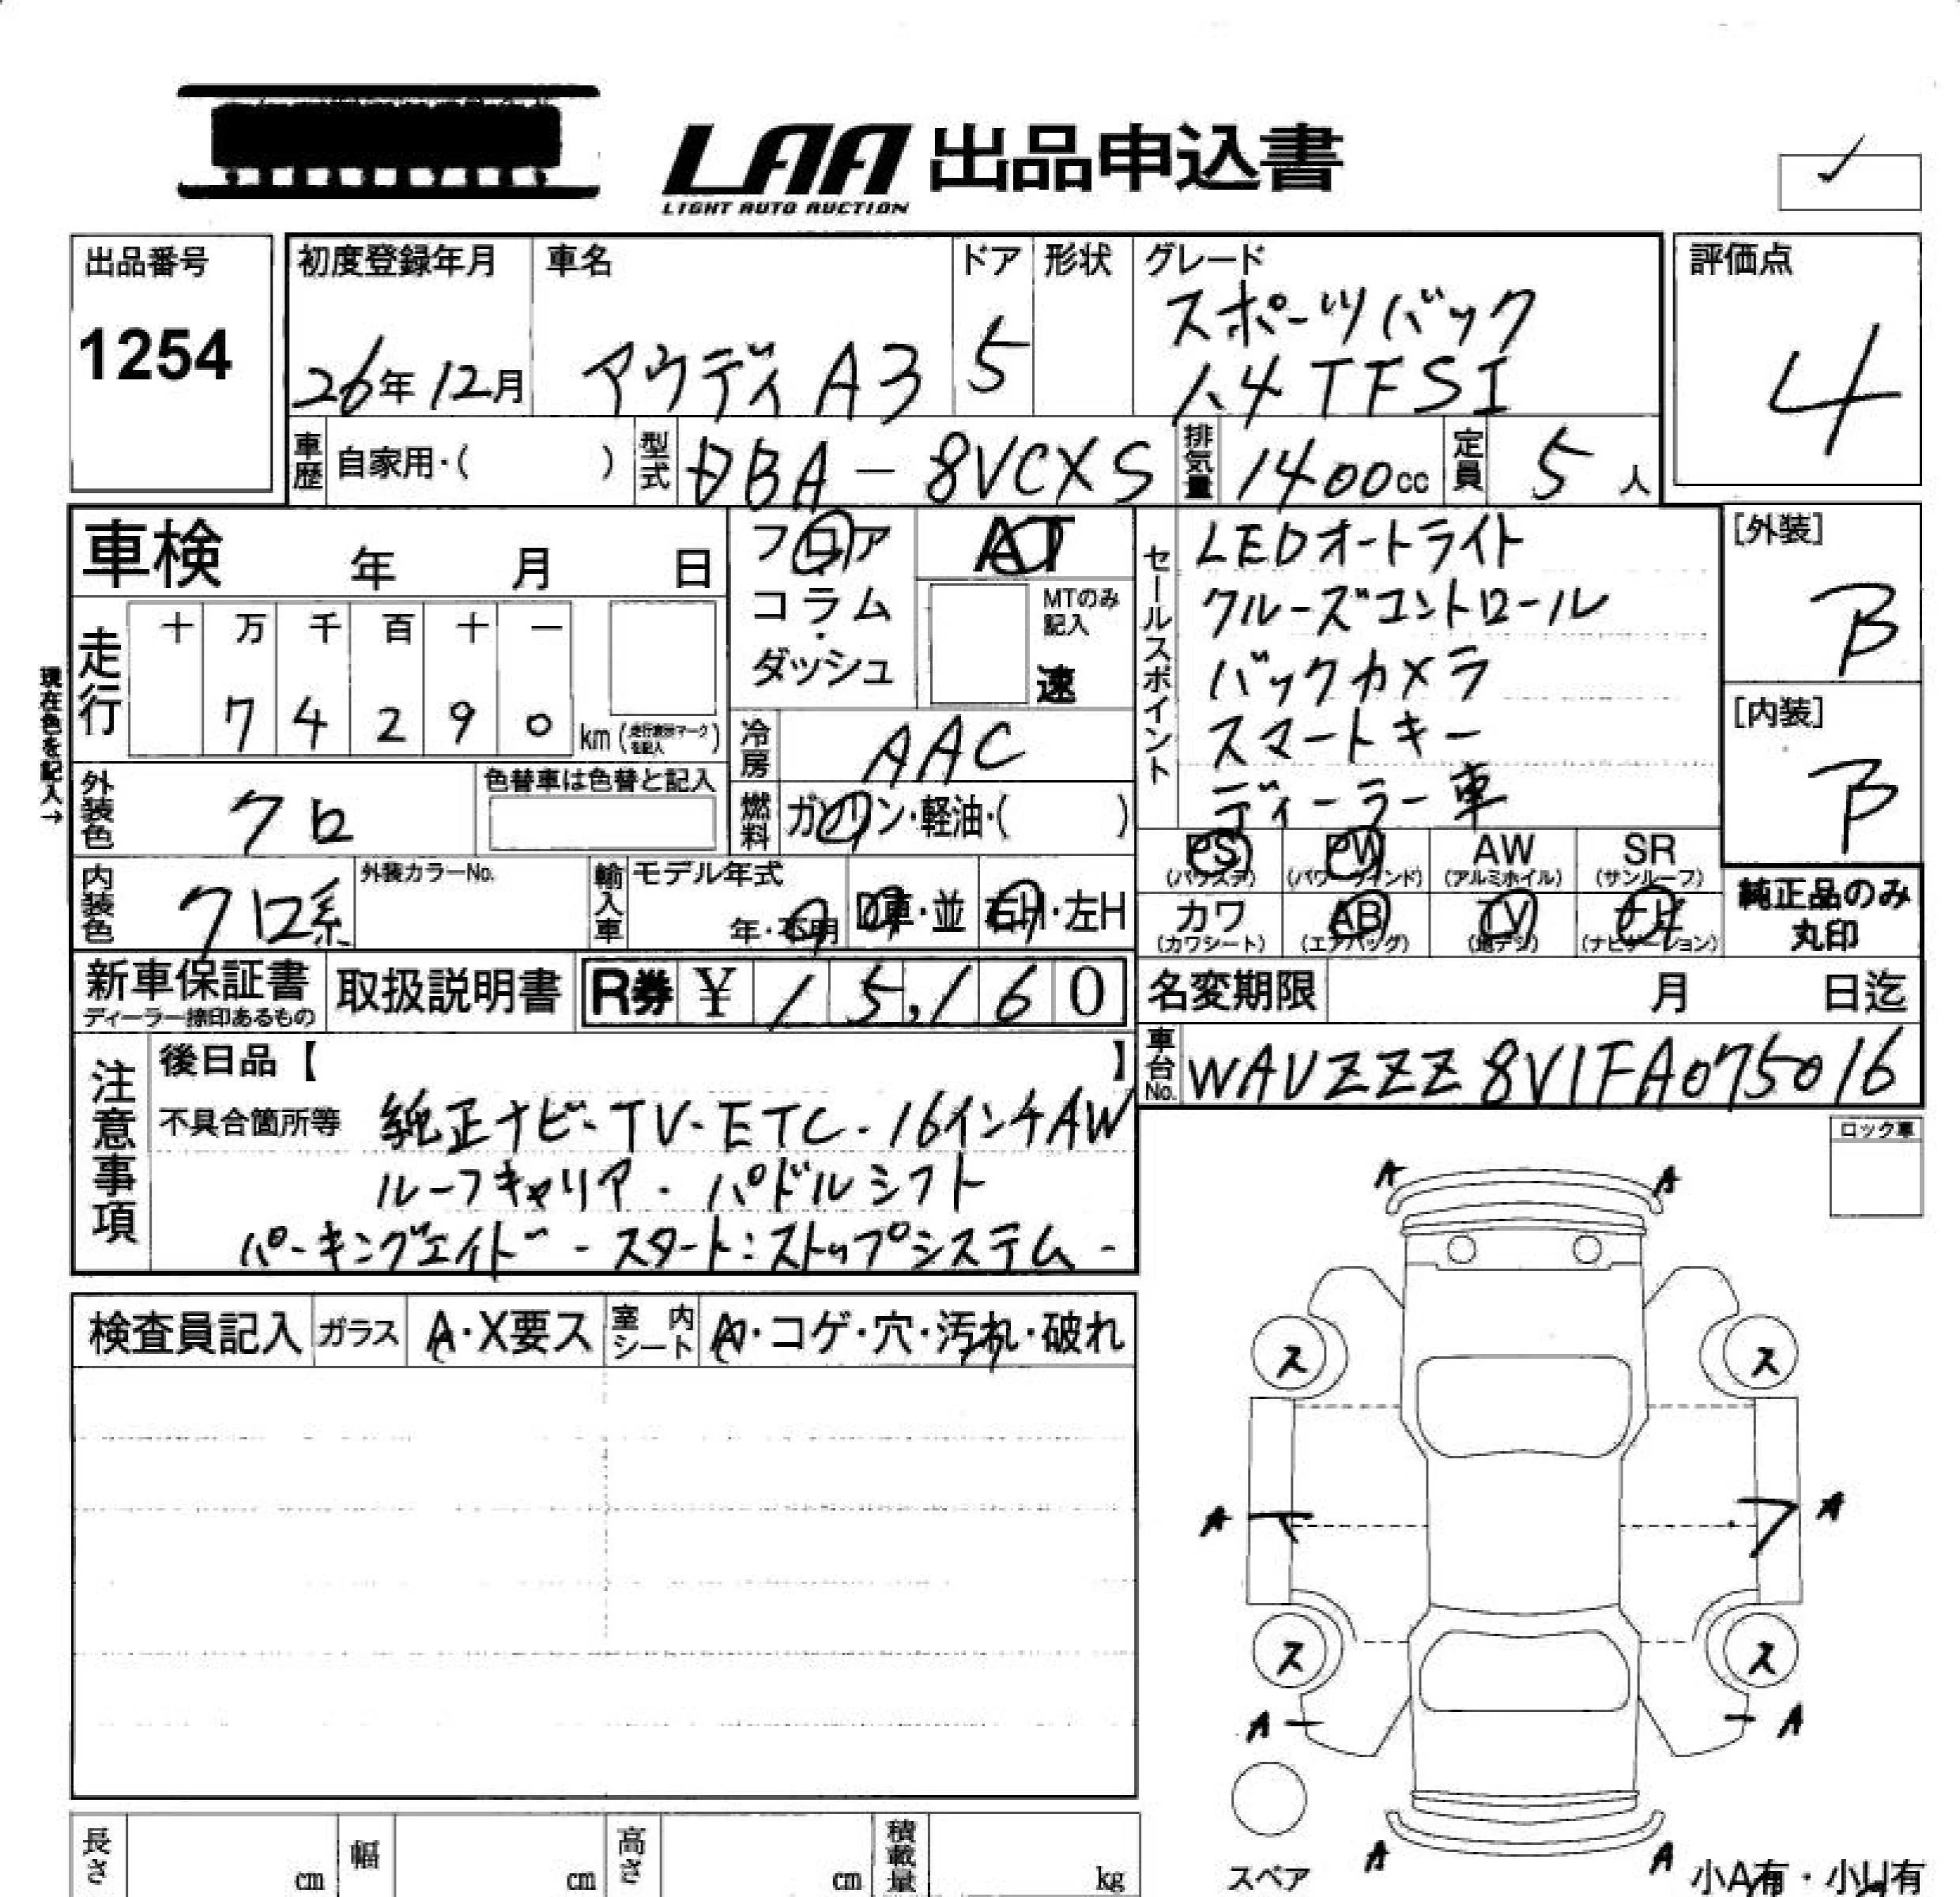 LAA 出品申込書
LIGHT AUTO AUCTION
出品番号
1254
初度登録年月
26年12月
車名
アウディ A3
ドア
5
形状
グレード
スポーツバック
1.4 TFSI
評価点
4
車歴 自家用・( )
型式 DBA-8VCXS
排気量 1400cc
定員 5人
車検 年 月 日
フロア
コラム
・
ダッシュ
AT
MTのみ
記入
速
セールスポイント
LEDオートライト
クルーズコントロール
バックカメラ
スマートキー
ディーラー車
[外装]
B
[内装]
B
現在色を記入→
走行
十 万 千 百 十 一
7 4 2 9 0 km (走行表示マークを記入)
冷房 AAC
外装色 クロ
色替車は色替と記入
燃料 ガソリン・軽油・( )
PS AW SR
PW
(パワステ) (パワーウインド) (アルミホイル) (サンルーフ)
カワ AB TV ナビ
(カワシート) (エアバッグ) (地デジ) (ナビゲーション)
純正品のみ
丸印
内装色 クロ系
外装カラーNo.
輸入車
モデル年式
年・不明
D車・並
右H・左H
新車保証書
ディーラー捺印あるもの
取扱説明書
R券 ¥ 15,160
名変期限 月 日迄
車台No. WAVZZZ8V1FA075016
注意事項
後日品【 】
不具合箇所等 純正ナビ・TV・ETC・16インチAW
ルーフキャリア・パドルシフト
パーキングエイド・スタート:ストップシステム・
ロック車
検査員記入 ガラス A・X要ス 室内シート ・コゲ・穴・汚れ・破れ
A A
ス ス
A A
ス ス
A A
スペア
A A
小A有・小U有
長さ cm 幅 cm 高さ cm 積載量 kg